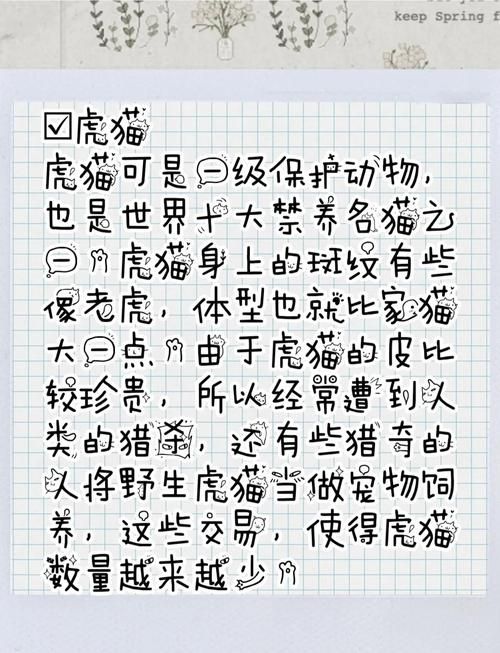 keep Spring f
☑虎猫
虎猫可是一级保护动物，
也是世界十大禁养名猫之
一。虎猫身上的斑纹有些
像老虎，体型也就比家猫
大一点。由于虎猫的皮比
较珍贵，所以经常遭到人
类的猎杀，还有些猎奇的
人将野生虎猫当做宠物饲
养，这些交易，使得虎猫
数量越来越少。